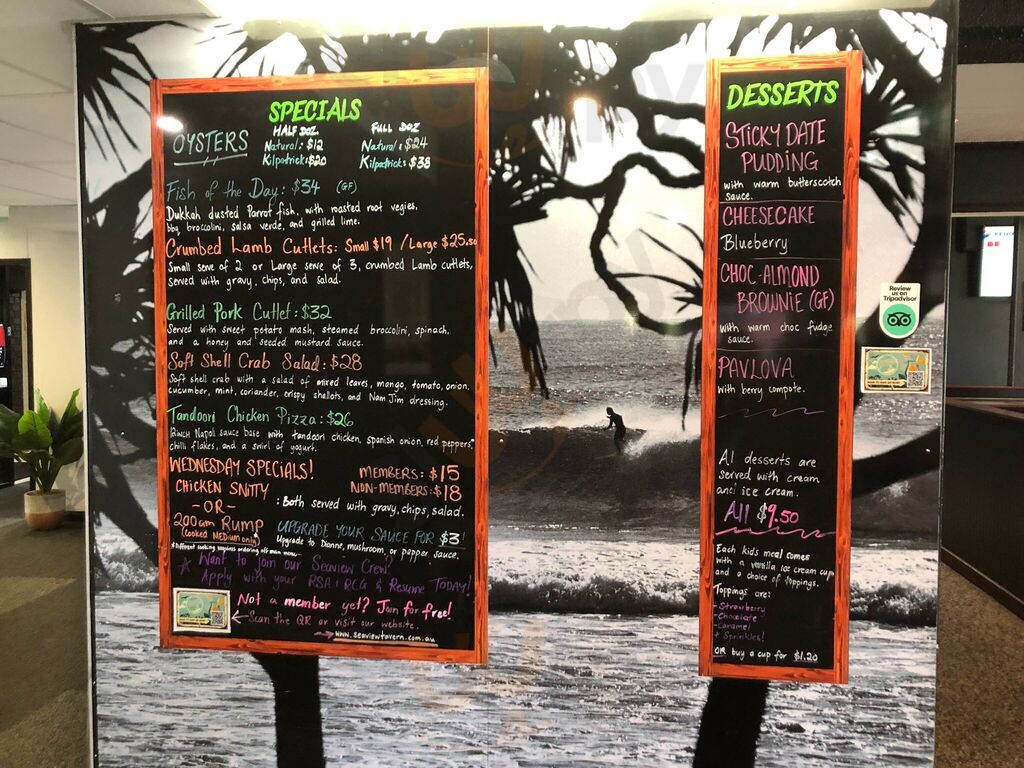 SPECIALS
OYSTERS
HALF DOZ.
Natural: $12
Kilpatrick: $20
FULL DOZ
Natural: $24
Kilpatrick: $38
Fish of the Day: $34 (GF)
Dukkah dusted Parrot fish, with roasted root vegies,
bbq broccolini, salsa verde, and grilled lime.
Crumbed Lamb Cutlets: Small $19 / Large $25.50
Small serve of 2 or Large serve of 3, crumbed Lamb cutlets,
served with gravy, chips, and salad.
Grilled Pork Cutlet: $32
Served with sweet potato mash, steamed broccolini, spinach,
and a honey and seeded mustard sauce.
Soft Shell Crab Salad: $28
Soft shell crab with a salad of mixed leaves, mango, tomato, onion,
cucumber, mint, coriander, crispy shallots, and Nam Jim dressing.
Tandoori Chicken Pizza: $26
12inch Napoli sauce base with tandoori chicken, spanish onion, red peppers,
chilli flakes, and a swirl of yogurt.
WEDNESDAY SPECIALS!
MEMBERS: $15
NON-MEMBERS: $18
CHICKEN SNITTY
- OR -
200Gm RUMP
(cooked MEDium only)
: Both served with gravy, chips, salad.
UPGRADE YOUR SAUCE FOR $3!
Upgrade to Dianne, mushroom, or pepper sauce.
*Different cooking requires ordering off main menu
Want to join our Seaview Crew?
Apply with your RSA, RCG & Resume TODAY!
Not a member yet? Join for free!
Scan the QR or visit our website.
www.seaviewtavern.com.au
DESSERTS
STICKY DATE
PUDDING
with warm butterscotch
sauce.
CHEESECAKE
Blueberry
CHOC-ALMOND
BROWNIE (GF)
with warm choc fudge
sauce.
PAVLOVA
with berry compote.
All desserts are
served with cream
and ice cream.
All $9.50
Each kids meal comes
with a vanilla ice cream cup
and a choice of toppings.
Toppings are:
- Strawberry
- Chocolate
- Caramel
+ Sprinkles!
OR buy a cup for $1.20
Review
us on
Tripadvisor